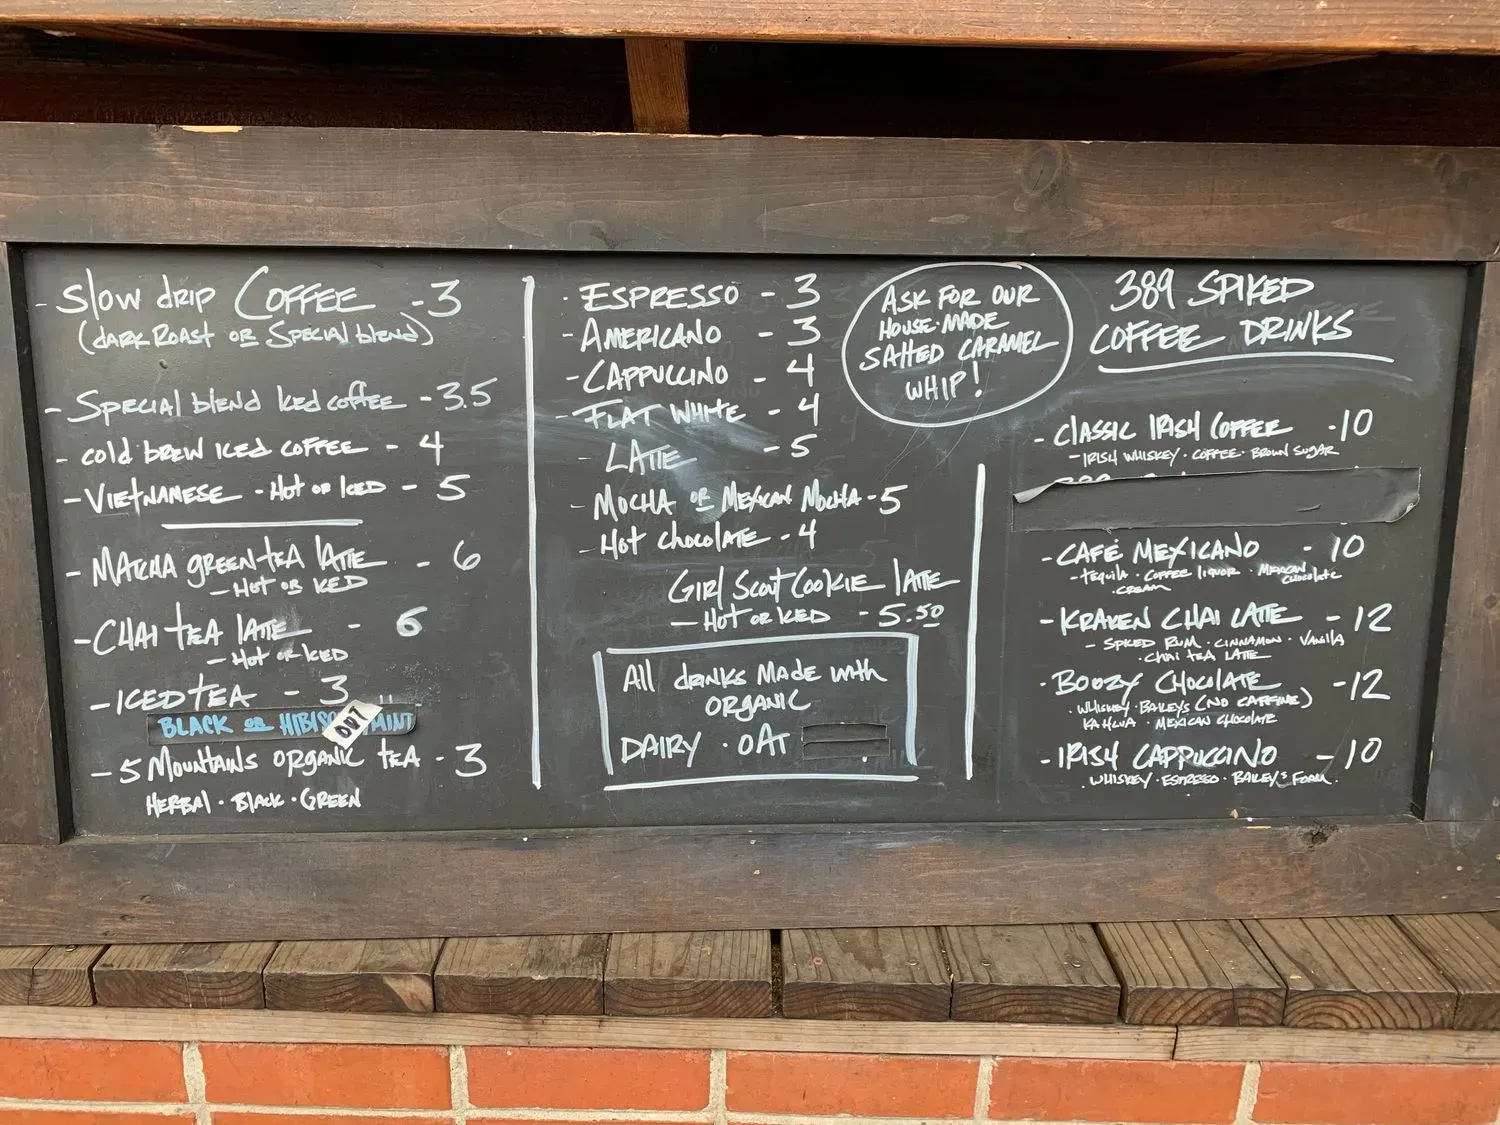 - Slow drip COFFEE - 3
(DARK ROAST OR SPECIAL blEND)
- SPECIAL blEND ICED coffEE - 3.5
- cold brew ICED COFFEE - 4
- VIETNAMESE - Hot or ICED - 5
- MATCHA GREEN tEA lATTE - 6
- Hot or ICED
- CHAI tEA lATTE - 6
- Hot or ICED
- ICED tEA - 3
BLACK OR MINT
- 5 MOUNTAINS ORGANIC tEA - 3
HERBAL · BlACK · GREEN
· ESPRESSO - 3
- AMERICANO - 3
- CAPPUCCINO - 4
- FLAT WHITE - 4
- LATTE - 5
- MOCHA OR MEXICAN MOCHA - 5
- Hot chocolATE - 4
GIRl SCOUT COOKIE lATTE
- Hot or ICED - 5.50
All dRINKS MADE with
ORGANIC
DAIRY · OAT
ASK FOR OUR
HOUSE·MADE
SALTED CARAMEL
WHIP!
389 SPIKED
COFFEE DRINKS
- ClASSIC IRISH COFFEE - 10
- IRISH WHISKEY · COFFEE · BROWN SUGAR
- CAFÉ MEXICANO - 10
- tEQUILA · COFFEE LIQUOR · MEXICAN CHOCOLATE
· CREAM
- KRAKEN CHAI LATTE - 12
- SPICED RUM · CINNAMON · VANIlA
· CHAI tEA LATTE
· BOOZY CHOCOLATE - 12
· WHISKEY · BAILEYS (NO CAFFEINE)
KAHLUA · MEXICAN CHOCOLATE
· IRISH CAPPUCCINO - 10
· WHISKEY · ESPRESSO · BAILEY'S FOAM.